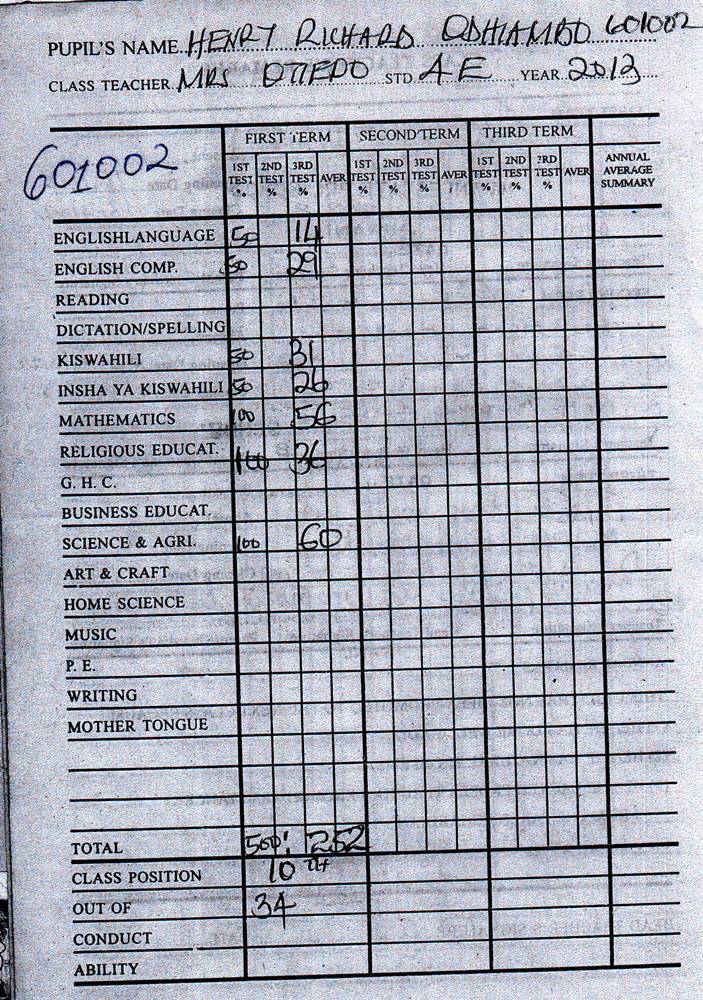 PUPIL'S NAME HENRY RICHARD ODHIAMBO 601002
CLASS TEACHER MRS OTIENO STD 4E YEAR 2013
601002
FIRST TERM SECOND TERM THIRD TERM
1ST TEST % 2ND TEST % 3RD TEST % AVER 1ST TEST % 2ND TEST % 3RD TEST % AVER 1ST TEST % 2ND TEST % 3RD TEST % AVER ANNUAL AVERAGE SUMMARY
ENGLISHLANGUAGE 50 14
ENGLISH COMP. 50 29
READING
DICTATION/SPELLING
KISWAHILI 50 31
INSHA YA KISWAHILI 50 26
MATHEMATICS 100 56
RELIGIOUS EDUCAT. 100 36
G. H. C.
BUSINESS EDUCAT.
SCIENCE & AGRI. 100 60
ART & CRAFT
HOME SCIENCE
MUSIC
P. E.
WRITING
MOTHER TONGUE
TOTAL 500: 252
CLASS POSITION 10 TH
OUT OF 34
CONDUCT
ABILITY